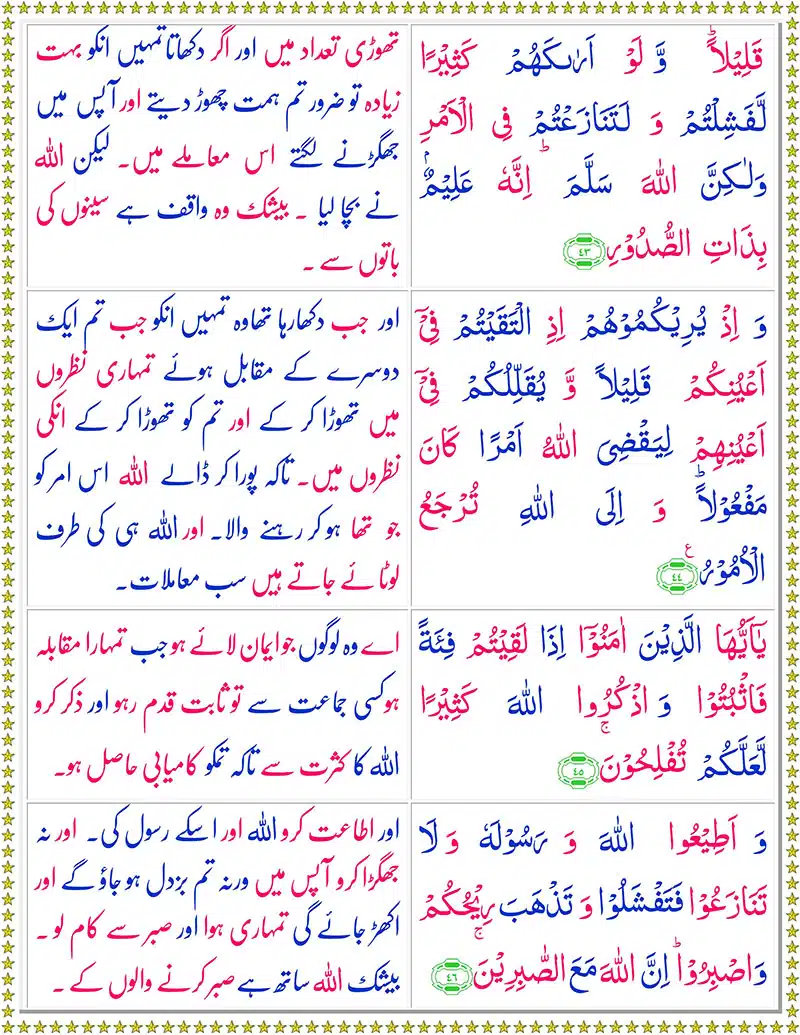 قَلِيْلًا ؕ وَّ لَوْ اَرٰىكَهُمْ كَثِيْرًا
لَّفَشِلْتُمْ وَ لَتَنَازَعْتُمْ فِى الْاَمْرِ
وَلٰـكِنَّ اللّٰهَ سَلَّمَ ؕ اِنَّهٗ عَلِيْمٌۢ
بِذَاتِ الصُّدُوْرِ ﴿۴۳﴾
تھوڑی تعداد میں اور اگر دکھاتا تمہیں انکو بہت
زیادہ تو ضرور تم ہمت چھوڑ دیتے اور آپس میں
جھگڑنے لگتے اس معاملے میں۔ لیکن اللہ
نے بچا لیا ۔ بیشک وہ واقف ہے سینوں کی
باتوں سے ۔
وَ اِذْ يُرِيْكُمُوْهُمْ اِذِ الْتَقَيْتُمْ فِىْۤ
اَعْيُنِكُمْ قَلِيْلًا وَّ يُقَلِّلُكُمْ فِىْۤ
اَعْيُنِهِمْ لِيَـقْضِىَ اللّٰهُ اَمْرًا كَانَ
مَفْعُوْلًا ؕ وَ اِلَى اللّٰهِ تُرْجَعُ
الْاُمُوْرُ ﴿۴۴﴾ ع
اور جب دکھا رہا تھا وہ تمہیں انکو جب تم ایک
دوسرے کے مقابل ہوئے تمہاری نظروں
میں تھوڑا کر کے اور تم کو تھوڑا کر کے انکی
نظروں میں۔ تاکہ پورا کر ڈالے اللہ اس امر کو
جو تھا ہو کر رہنے والا۔ اور اللہ ہی کی طرف
لوٹائے جاتے ہیں سب معاملات۔
يٰۤاَيُّهَا الَّذِيْنَ اٰمَنُوْۤا اِذَا لَقِيْتُمْ فِئَةً
فَاثْبُتُوْا وَ اذْكُرُوا اللّٰهَ كَثِيْرًا
لَّعَلَّكُمْ تُفْلِحُوْنَ ۚ ﴿۴۵﴾
اے وہ لوگوں جو ایمان لائے ہو جب تمہارا مقابلہ
ہو کسی جماعت سے تو ثابت قدم رہو اور ذکر کرو
اللہ کا کثرت سے تاکہ تمکو کامیابی حاصل ہو۔
وَ اَطِيْعُوا اللّٰهَ وَ رَسُوْلَهٗ وَ لَا
تَنَازَعُوْا فَتَفْشَلُوْا وَ تَذْهَبَ رِيْحُكُمْ
وَاصْبِرُوْا ؕ اِنَّ اللّٰهَ مَعَ الصّٰبِرِيْنَ ۚ ﴿۴۶﴾
اور اطاعت کرو اللہ اور اسکے رسول کی۔ اور نہ
جھگڑا کرو آپس میں ورنہ تم بزدل ہو جاؤ گے اور
اکھڑ جائے گی تمہاری ہوا اور صبر سے کام لو ۔
بیشک اللہ ساتھ ہے صبر کرنے والوں کے ۔